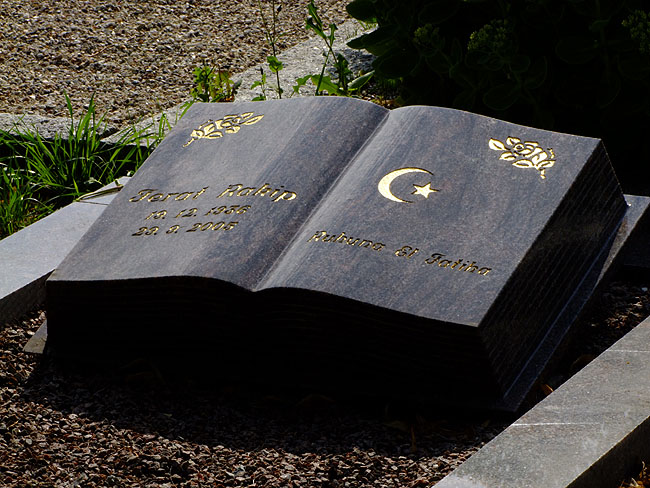 Feraj Rakip
19. 12. 1936
29. 9. 2005
Ruhuna El Fatiha